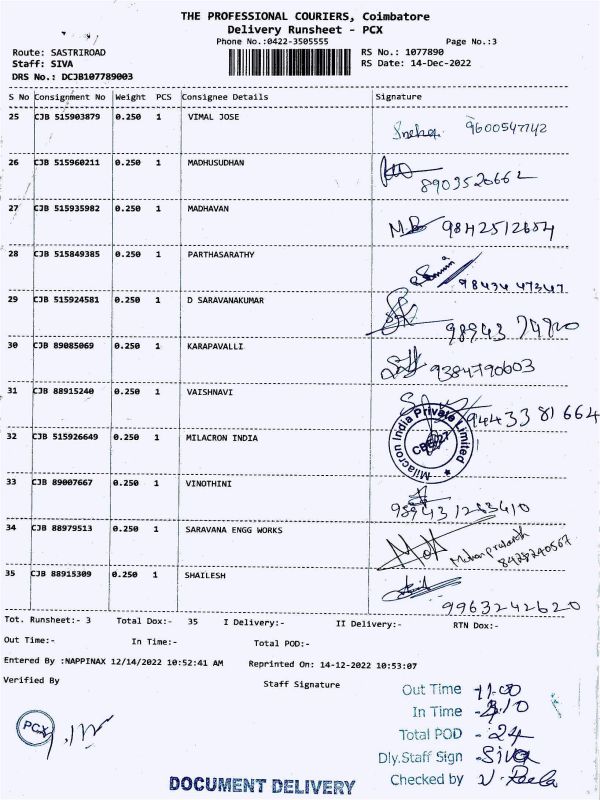 THE PROFESSIONAL COURIERS, Coimbatore
Delivery Runsheet - PCX
Phone No.:0422-3505555 Page No.:3
Route: SASTRIROAD RS No.: 1077890
Staff: SIVA RS Date: 14-Dec-2022
DRS No.: DCJB107789003
S No Consignment No Weight PCS Consignee Details Signature
25 CJB 515903879 0.250 1 VIMAL JOSE Sneha 9600547742
26 CJB 515960211 0.250 1 MADHUSUDHAN
27 CJB 515935982 0.250 1 MADHAVAN 9842512654
28 CJB 515849385 0.250 1 PARTHASARATHY 98434 47347
29 CJB 515924581 0.250 1 D SARAVANAKUMAR 98943
30 CJB 89085069 0.250 1 KARAPAVALLI 9384790603
31 CJB 88915240 0.250 1 VAISHNAVI 9443381664
32 CJB 515926649 0.250 1 MILACRON INDIA Milacron India Private Limited
33 CJB 89007667 0.250 1 VINOTHINI
34 CJB 88979513 0.250 1 SARAVANA ENGG WORKS 8428240567
35 CJB 88915309 0.250 1 SHAILESH 9963242620
Tot. Runsheet:- 3 Total Dox:- 35 I Delivery:- II Delivery:- RTN Dox:-
Out Time:- In Time:- Total POD:-
Entered By :NAPPINAX 12/14/2022 10:52:41 AM Reprinted On: 14-12-2022 10:53:07
Verified By Staff Signature
Out Time 11.00
In Time
Total POD - 24
Dly.Staff Sign - Siva
Checked by
PCX
DOCUMENT DELIVERY